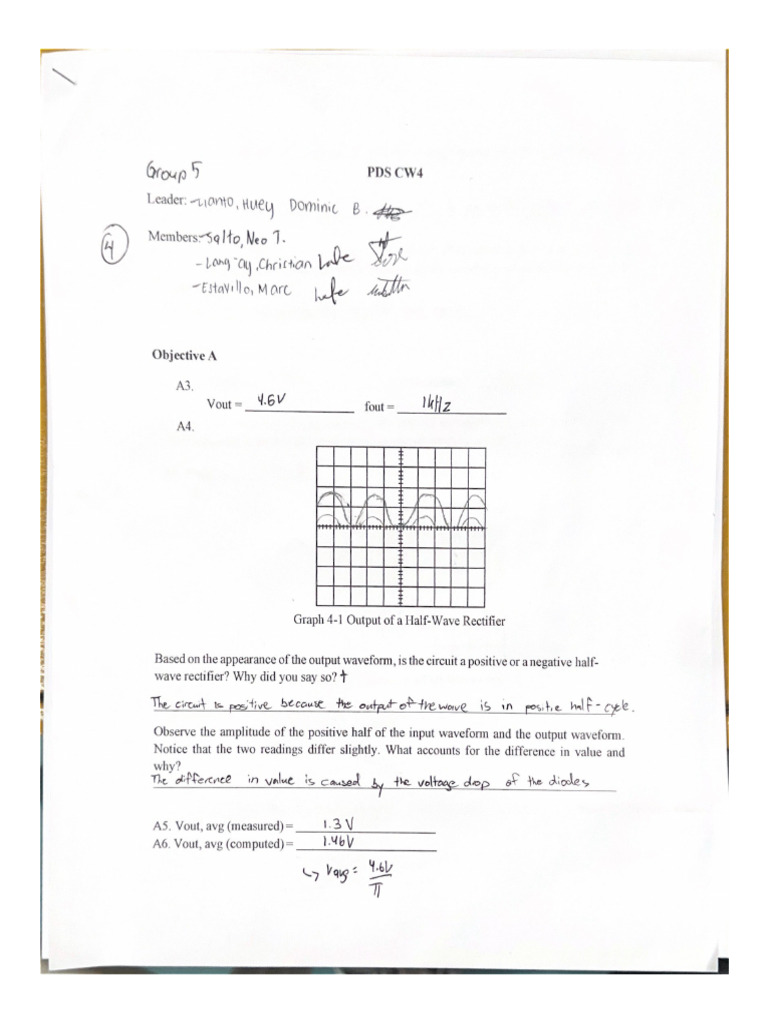 Group 5
PDS CW4
Leader: - Lianto, Huey Dominic B.
4
Members: - Salto, Neo T.
- Lang-ay, Christian
- Estavillo, Marc
Objective A
A3.
Vout = 4.6V fout = 1kHz
A4.
Graph 4-1 Output of a Half-Wave Rectifier
Based on the appearance of the output waveform, is the circuit a positive or a negative half-
wave rectifier? Why did you say so? +
The circuit is positive because the output of the wave is in positie half-cycle.
Observe the amplitude of the positive half of the input waveform and the output waveform.
Notice that the two readings differ slightly. What accounts for the difference in value and
why?
The difference in value is caused by the voltage drop of the diodes
A5. Vout, avg (measured) = 1.3 V
A6. Vout, avg (computed) = 1.46V
↳ Vavg = 4.6V
π